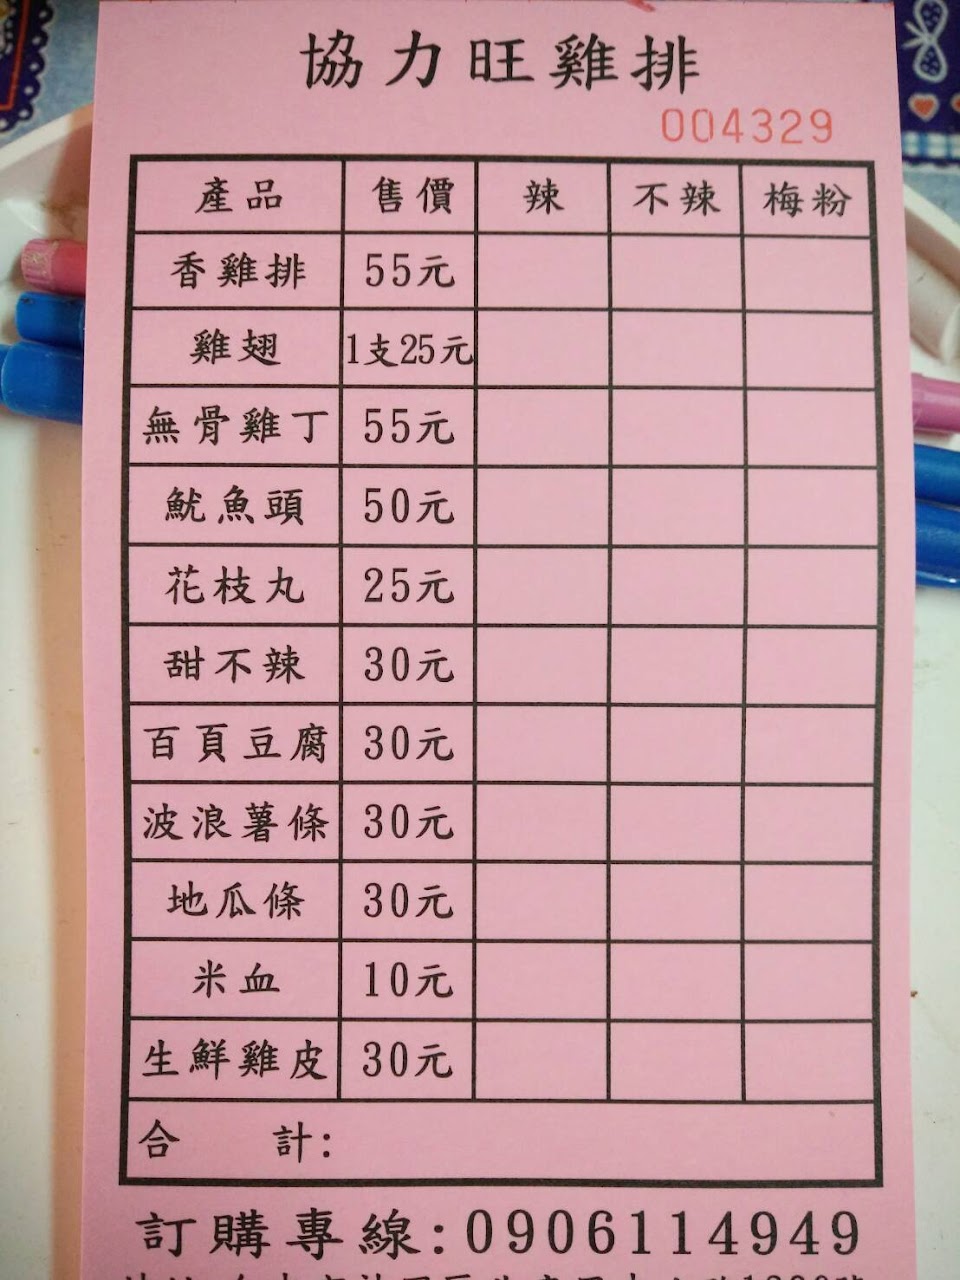 協力旺雞排
004329
產品 售價 辣 不辣 梅粉
香雞排 55元
雞翅 1支25元
無骨雞丁 55元
魷魚頭 50元
花枝丸 25元
甜不辣 30元
百頁豆腐 30元
波浪薯條 30元
地瓜條 30元
米血 10元
生鮮雞皮 30元
合 計:
訂購專線:0906114949